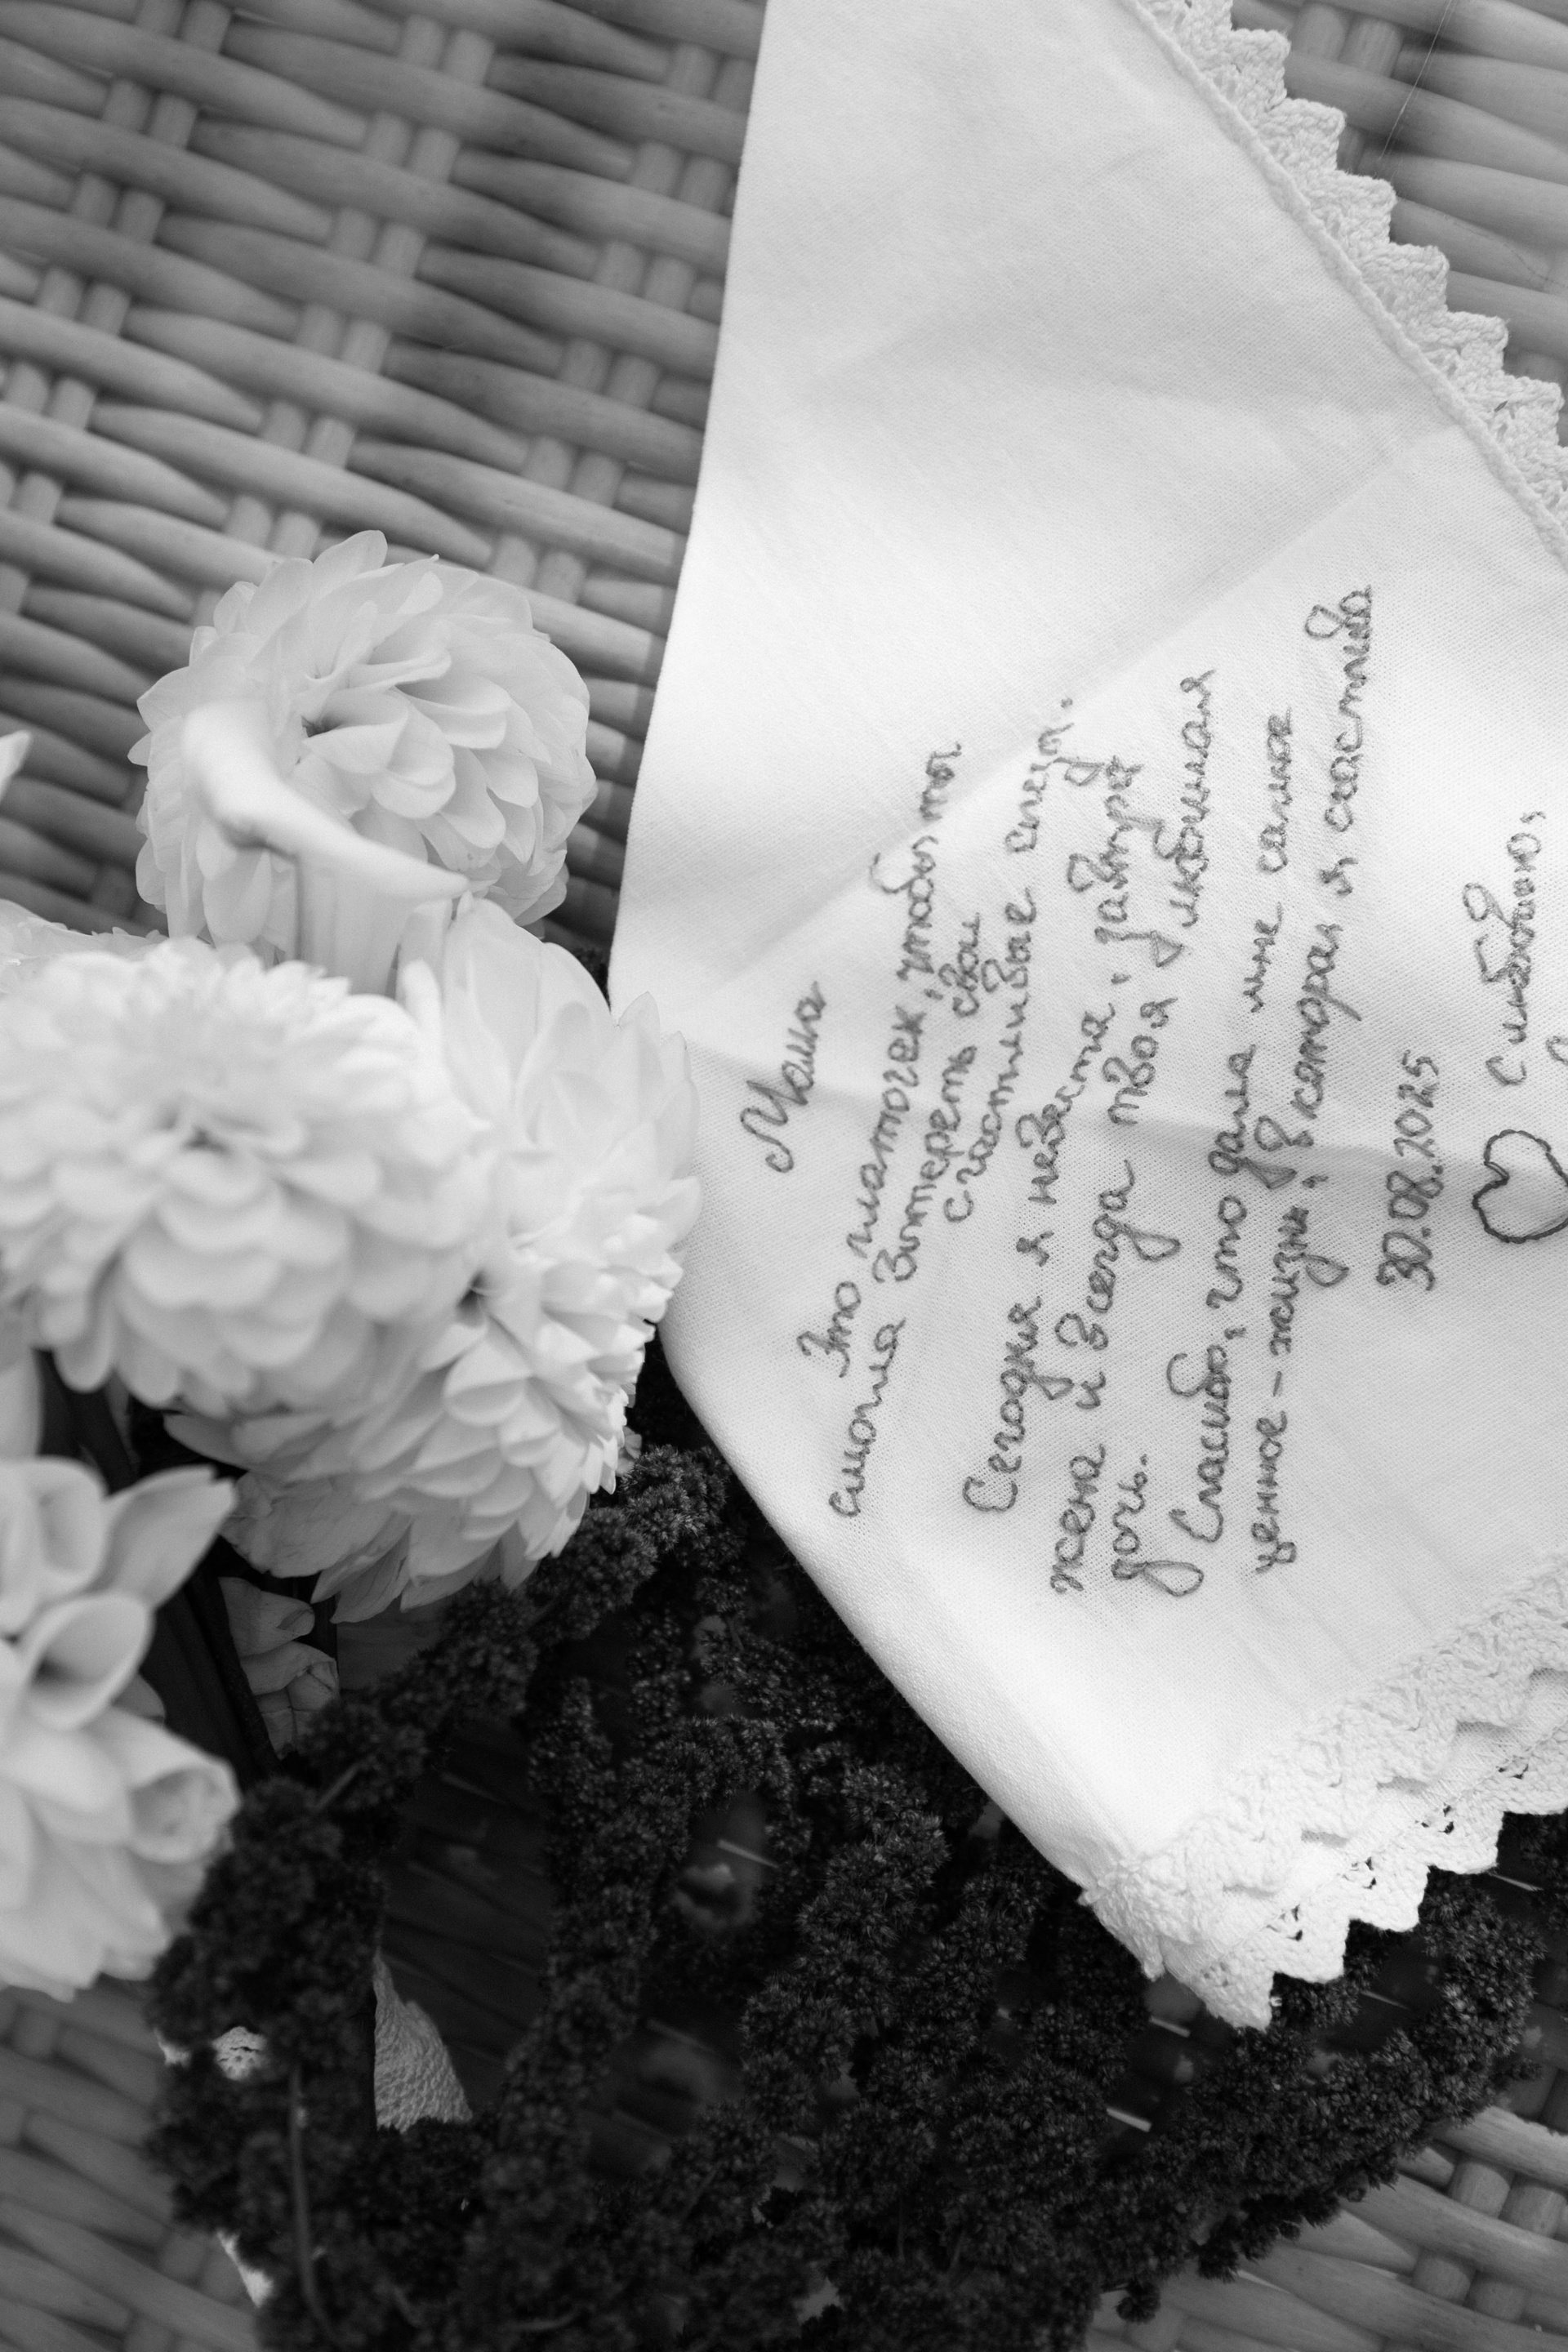 Мама
Это платочек, чтобы ты
смогла вытереть свои
счастливые слезы.
Сегодня я невеста, завтра
жена и всегда твоя любимая
дочь.
Спасибо, что дала мне самое
ценное - жизнь, в которой я счастлива
30.08.2025
С любовью,